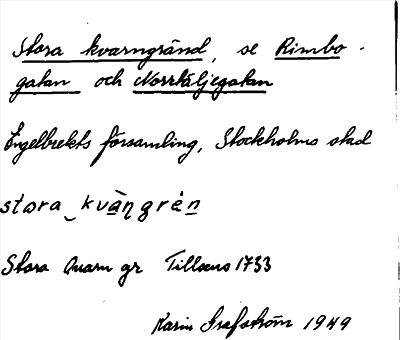 Stora kvarngränd, se Rimbo-
gatan och Norrtäljegatan
Engelbrekts församling, Stockholms stad
stora kvàŋgrén
Stora Quarn gr Tillæus 1733
Karin Grafström 1949